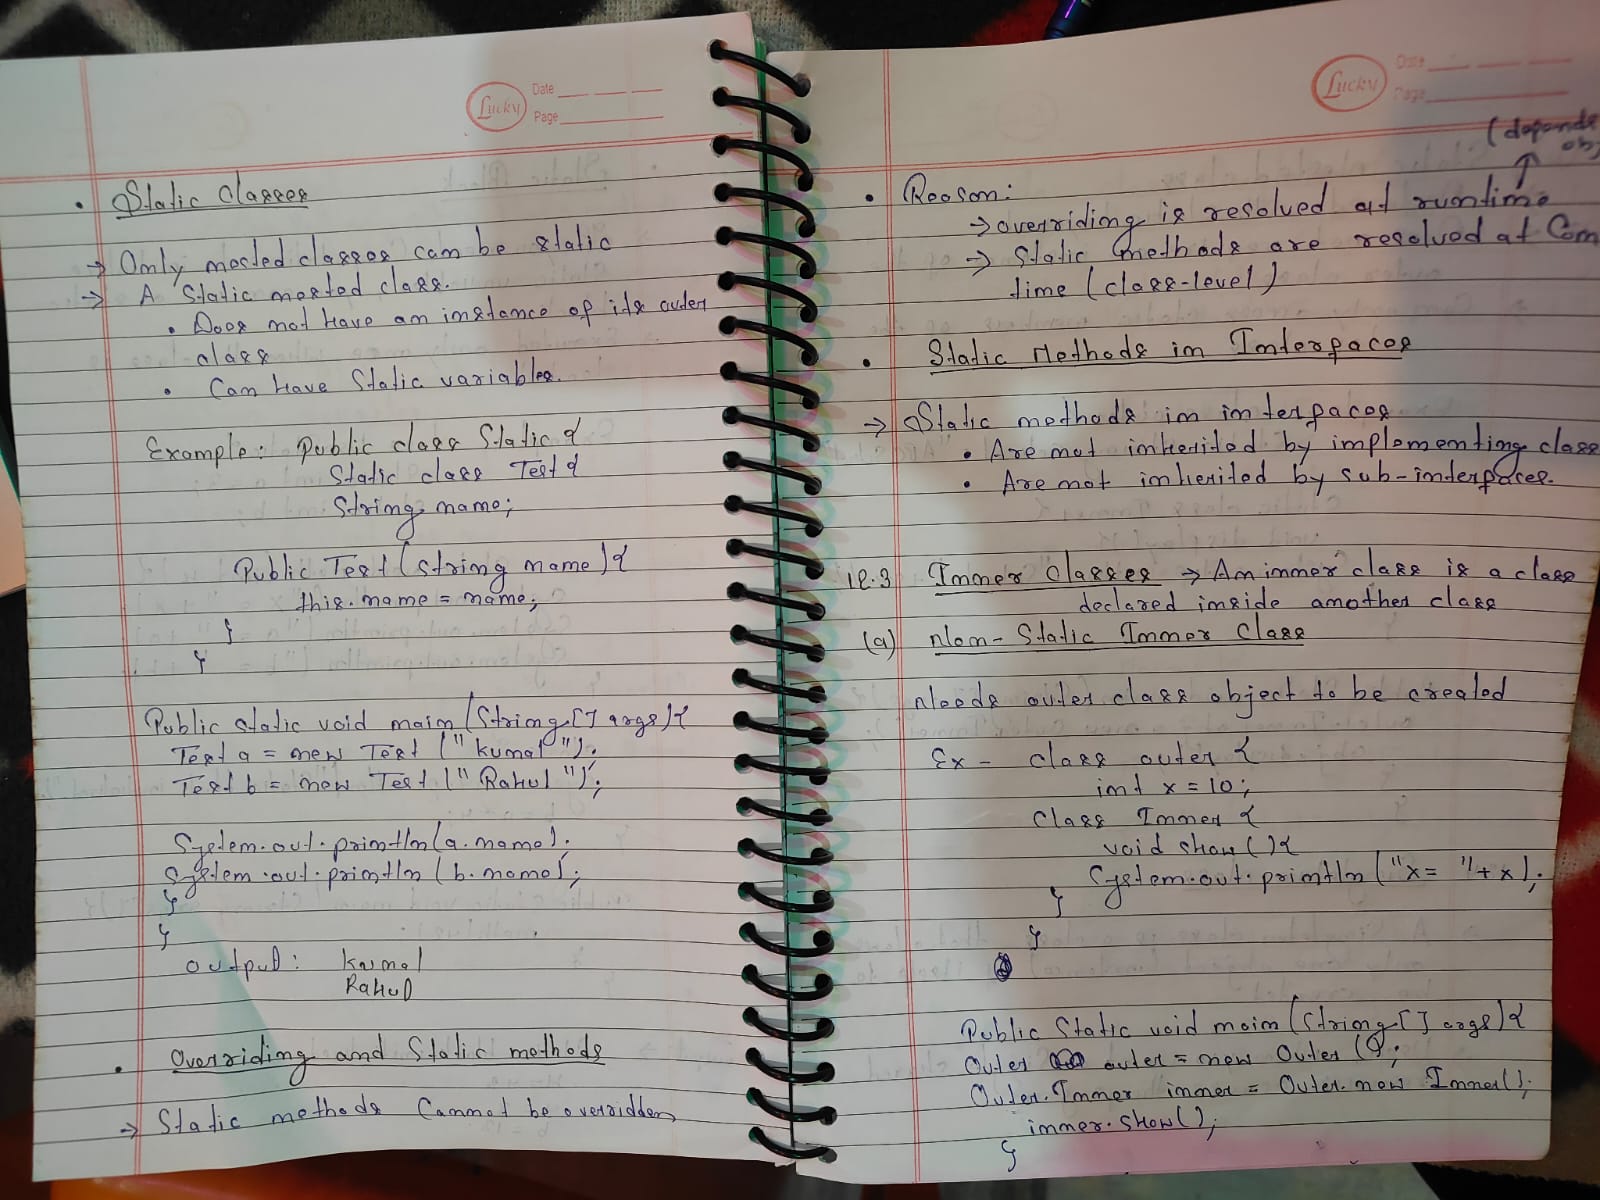 Lucky
Date
Page
• Static Classes
→ Only nested classes can be static
→ A Static nested class.
• Does not have an instance of its outer
class
• Can have Static variables.
Example: Public class Static {
Static class Test {
String name;
Public Test (String name) {
this.name = name;
}
}
Public static void main (String [] args) {
Test a = new Test ("Kunal");
Test b = new Test ("Rahul");
System.out.println(a.name);
System.out.println(b.name);
}
}
output: Kunal
Rahul
• Overriding and Static methods
→ Static methods Cannot be overridden
Lucky
Date
Page
(depends
• Reason:
→ overriding is resolved at runtime
→ Static methods are resolved at Com
time (class-level)
• Static Methods in Interfaces
→ Static methods in interfaces
• Are not inherited by implementing class
• Are not inherited by sub-interfaces.
12.3 Inner Classes → An inner class is a class
declared inside another class
(a) Non-Static Inner Class
Needs outer class object to be created
Ex - class outer {
int x = 10;
Class Inner {
void show () {
System.out.println ("x= "+x);
}
}
Public Static void main (String [] args) {
Outer outer = new Outer ();
Outer.Inner inner = Outer.new Inner();
inner.show();
}